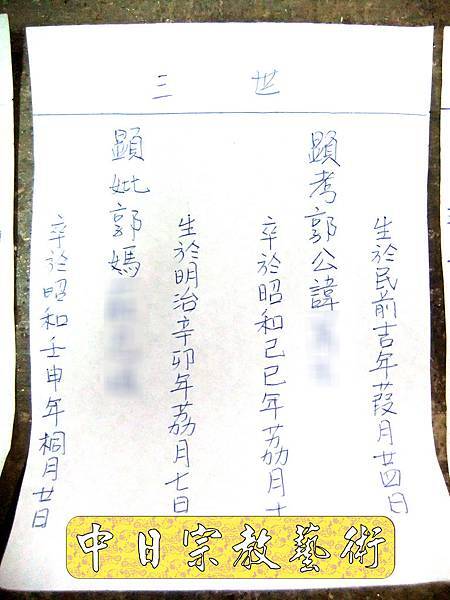 世 三
生於民前吉年葭月廿四日
顯考郭公諱
卒於昭和己巳年荔月十
生於明治辛卯年荔月七日
顯妣郭媽
卒於昭和壬申年桐月廿日
中日宗教藝術